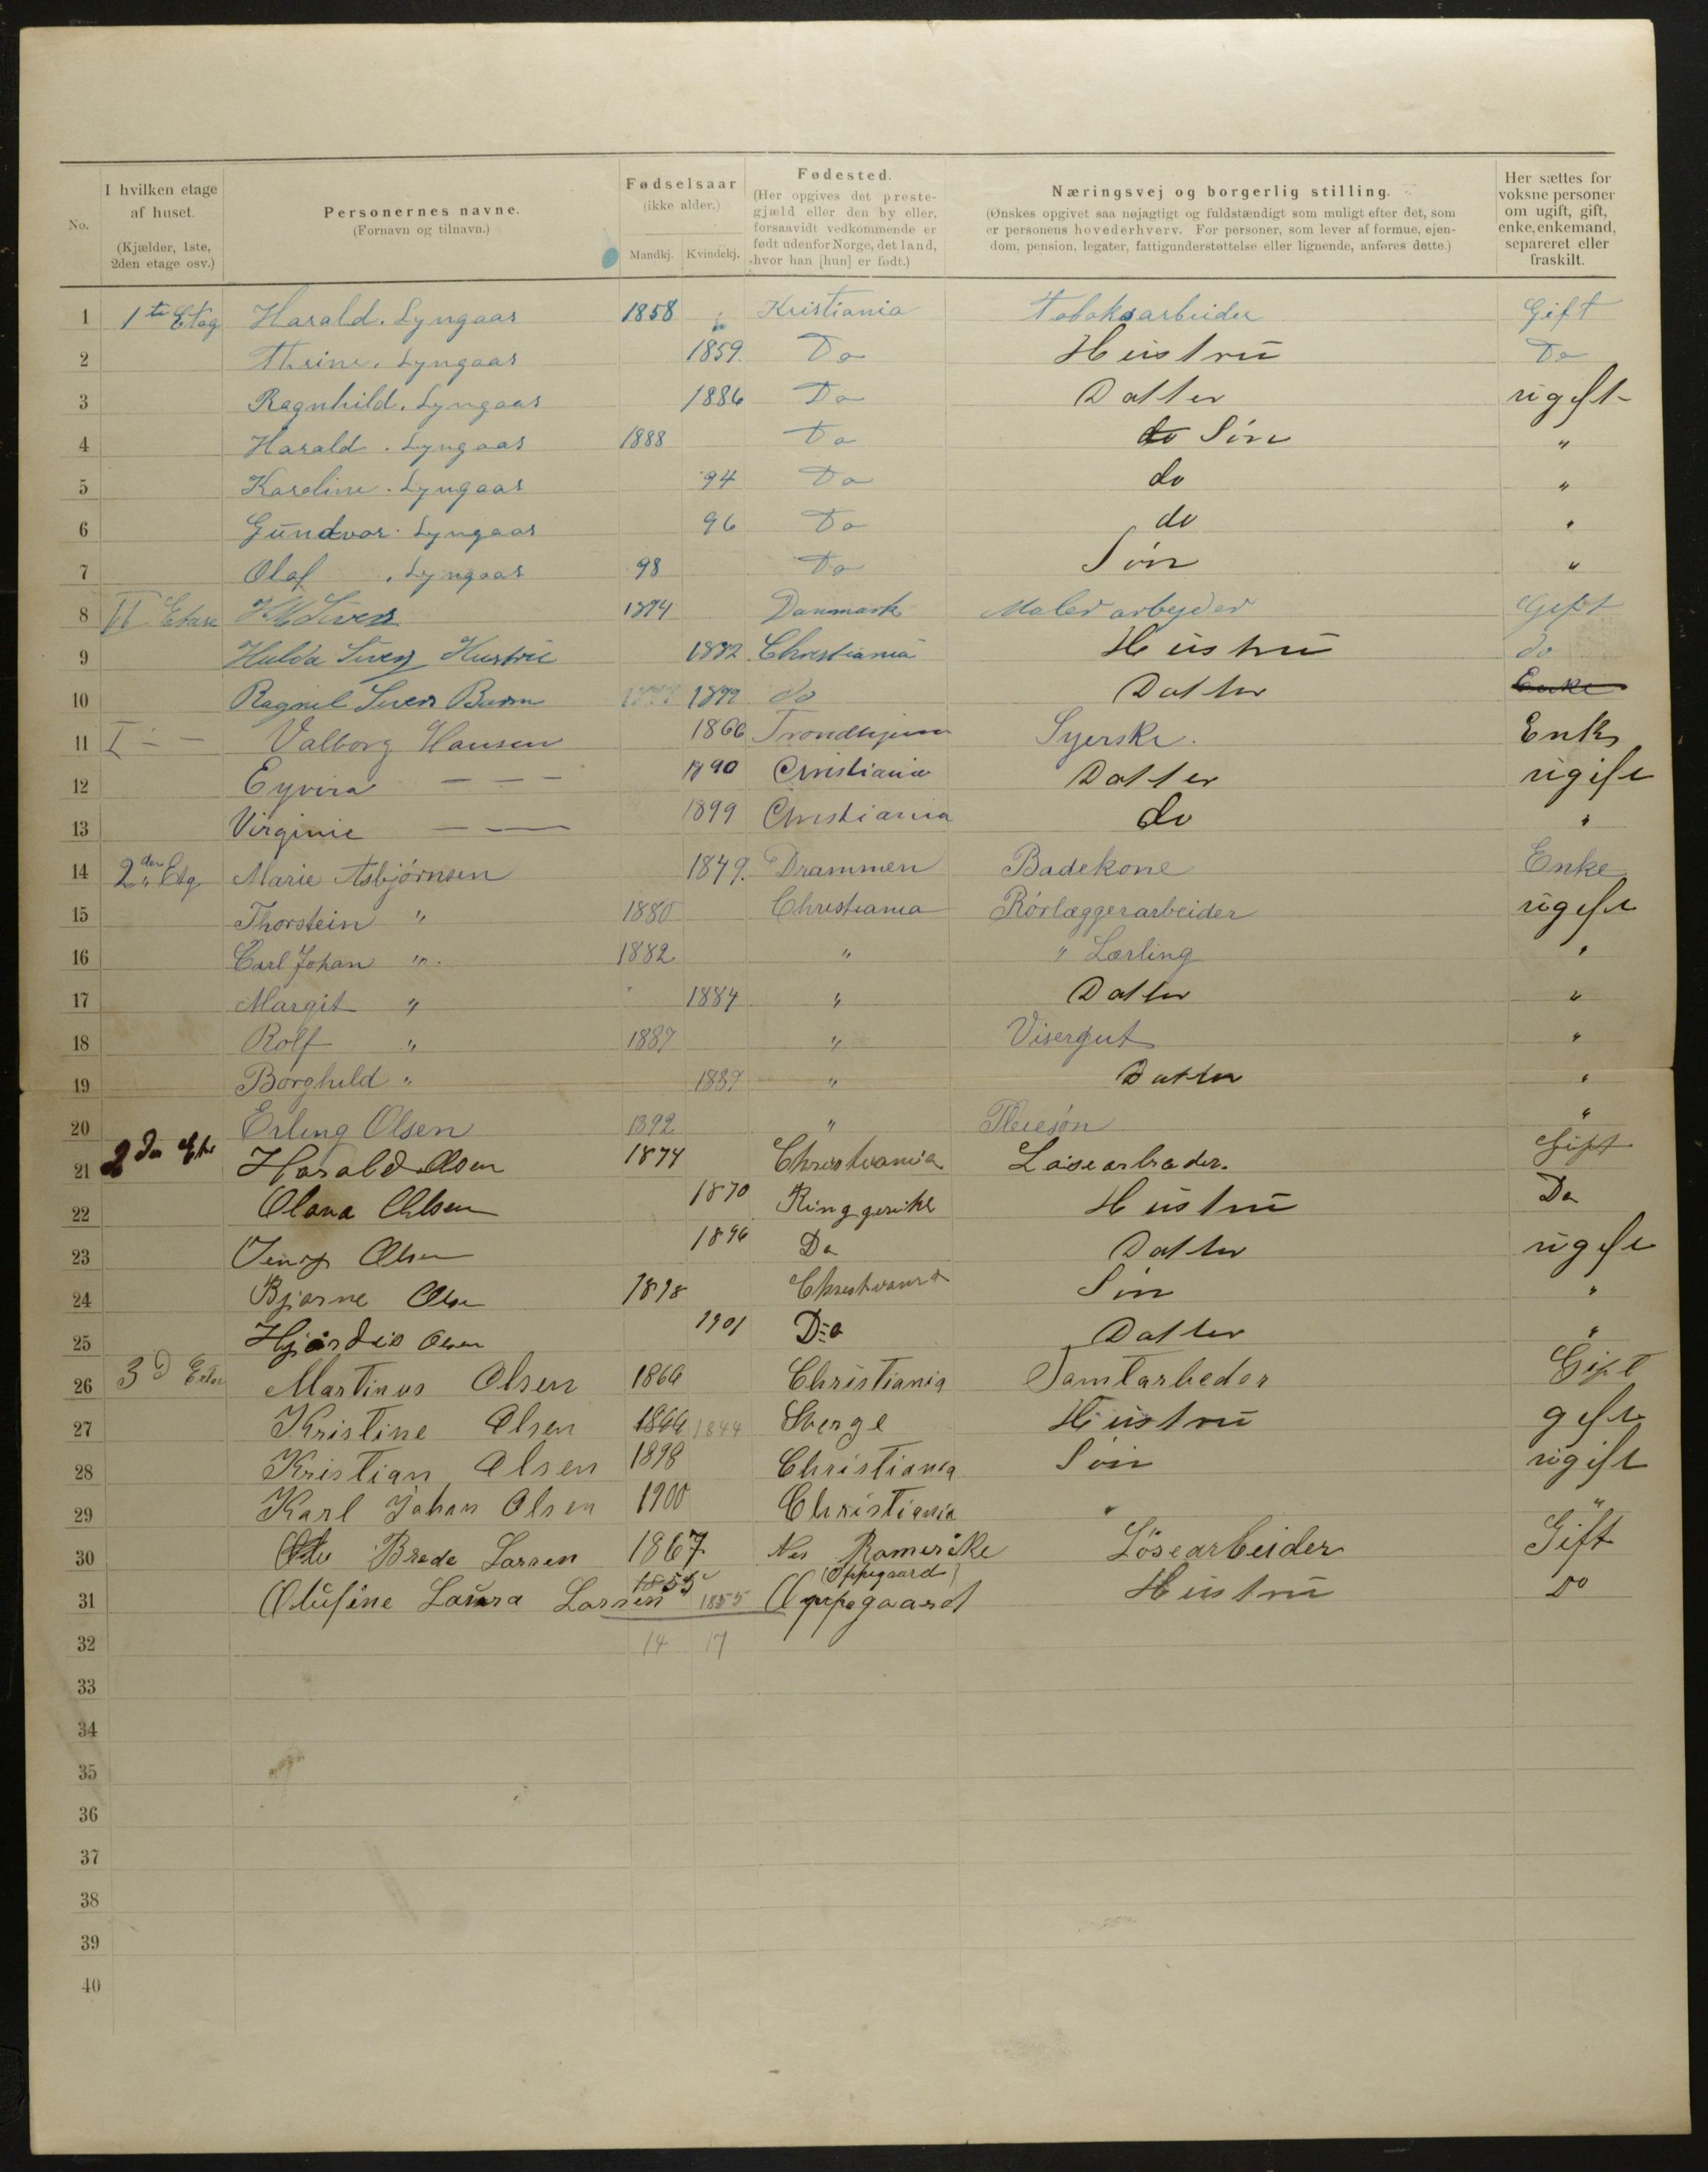 No. | I hvilken etage af huset. (Kjælder, 1ste, 2den etage osv.) | Personernes navne. (Fornavn og tilnavn.) | Fødselsaar (ikke alder.) Mandkj. Kvindekj. | Fødested. (Her opgives det prestegjæld eller den by eller, forsaavidt vedkommende er født udenfor Norge, det land, hvor han [hun] er født.) | Næringsvej og borgerlig stilling. (Ønskes opgivet saa nøjagtigt og fuldstændigt som muligt efter det, som er personens hovederhverv. For personer, som lever af formue, ejendom, pension, legater, fattigunderstøttelse eller lignende, anføres dette.) | Her sættes for voksne personer om ugift, gift, enke, enkemand, separeret eller fraskilt.
1 1te Etag Harald. Lyngaas 1858 Kristiania Tobaksarbeider Gift
2 Lyngaas 1859. Do Hustru Do
3 Ragnhild. Lyngaas 1886 Do Datter ugift
4 Harald. Lyngaas 1888 Do do Søn "
5 Karoline. Lyngaas 94 Do do "
6 Gundvor. Lyngaas 96 Do do "
7 Olaf. Lyngaas 98 Do Søn "
8 II Etase 1874 Danmark Malerarbejder Gift
9 Hulda Hustru 1882 Christiania Hustru do
10 Ragnil Barn 1899 do Datter Enke
11 I - - Valborg Hansen 1866 Trondhjem Syerske. Enke
12 Eyvira - - - 1890 Christiania Datter ugift
13 Virginie - - 1899 Christiania do "
14 2den Etg Marie Asbjørnsen 1849. Drammen Badekone Enke
15 Thorstein " 1880 Christiania Rørlæggerarbeider ugift
16 Carl Johan " 1882 " " Lærling "
17 Margit " 1884 " Datter "
18 Rolf " 1887 " Visergut "
19 Borghild " 1889 " Datter "
20 Erling Olsen 1892 " Pleiesøn "
21 2den Harald Olsen 1874 Christiania Løsearbader. Gift
22 Olava Ohlsen 1870 Ringgerike Hustru Do
23 Jeny Olsen 1896 Do Datter ugift
24 Bjarne Olsen 1898 Christiania Søn "
25 Hjørdis Olsen 1901 Do Datter "
26 3d Martinus Olsen 1866 Christiania Tomtarbeder Gift
27 Kristine Olsen 1866 1844 Sverge Hustru gift
28 Kristian Olsen 1898 Christiania Søn ugift
29 Karl Johan Olsen 1900 Christiania " "
30 Brede Larsen 1867 Nes Romerike Løsearbeider Gift
31 Olufine Laura Larsen 1855 1855 Oppegaard (Oppegaard) Hustru Do
32 14 17
33
34
35
36
37
38
39
40